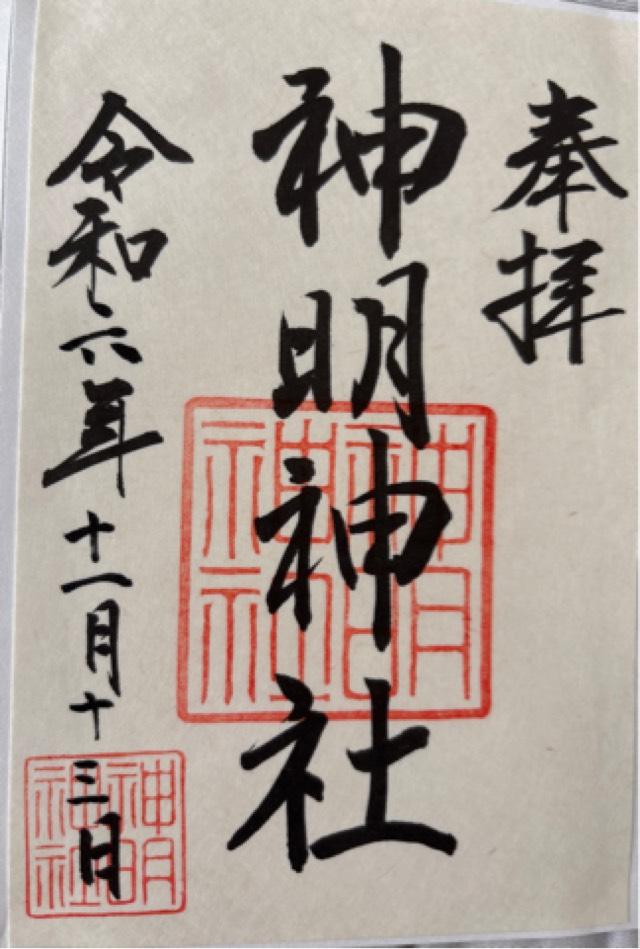 奉拝
神明神社
令和六年十一月十三日
神明
神社
神明
神社